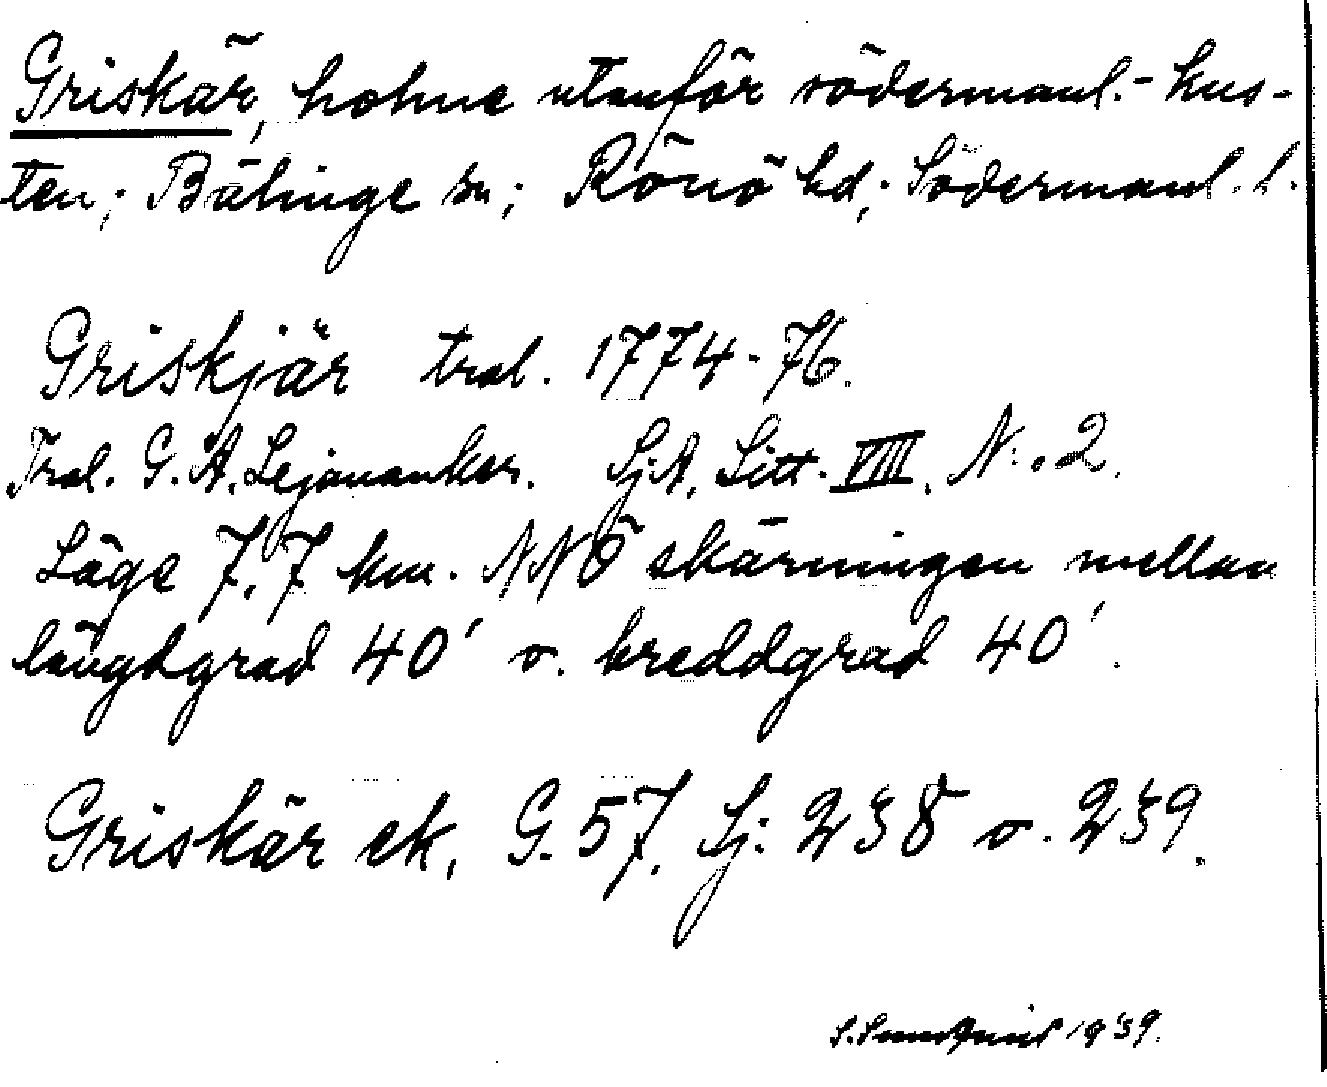 Griskär, holme utanför södermanl.-kus-
ten; Bälinge sn; Rönö hd; Södermanl. l.
Griskjär tral. 1774-76.
Tral. G. A. Lejonanker. Sj.A. Litt. VIII. N:.2.
Läge 7,7 km. NNÖ skärningen mellan
längdgrad 40' o. breddgrad 40'.
Griskär ek. G. 57. Sj: 238 o. 239.
S. Sundqvist 1939.